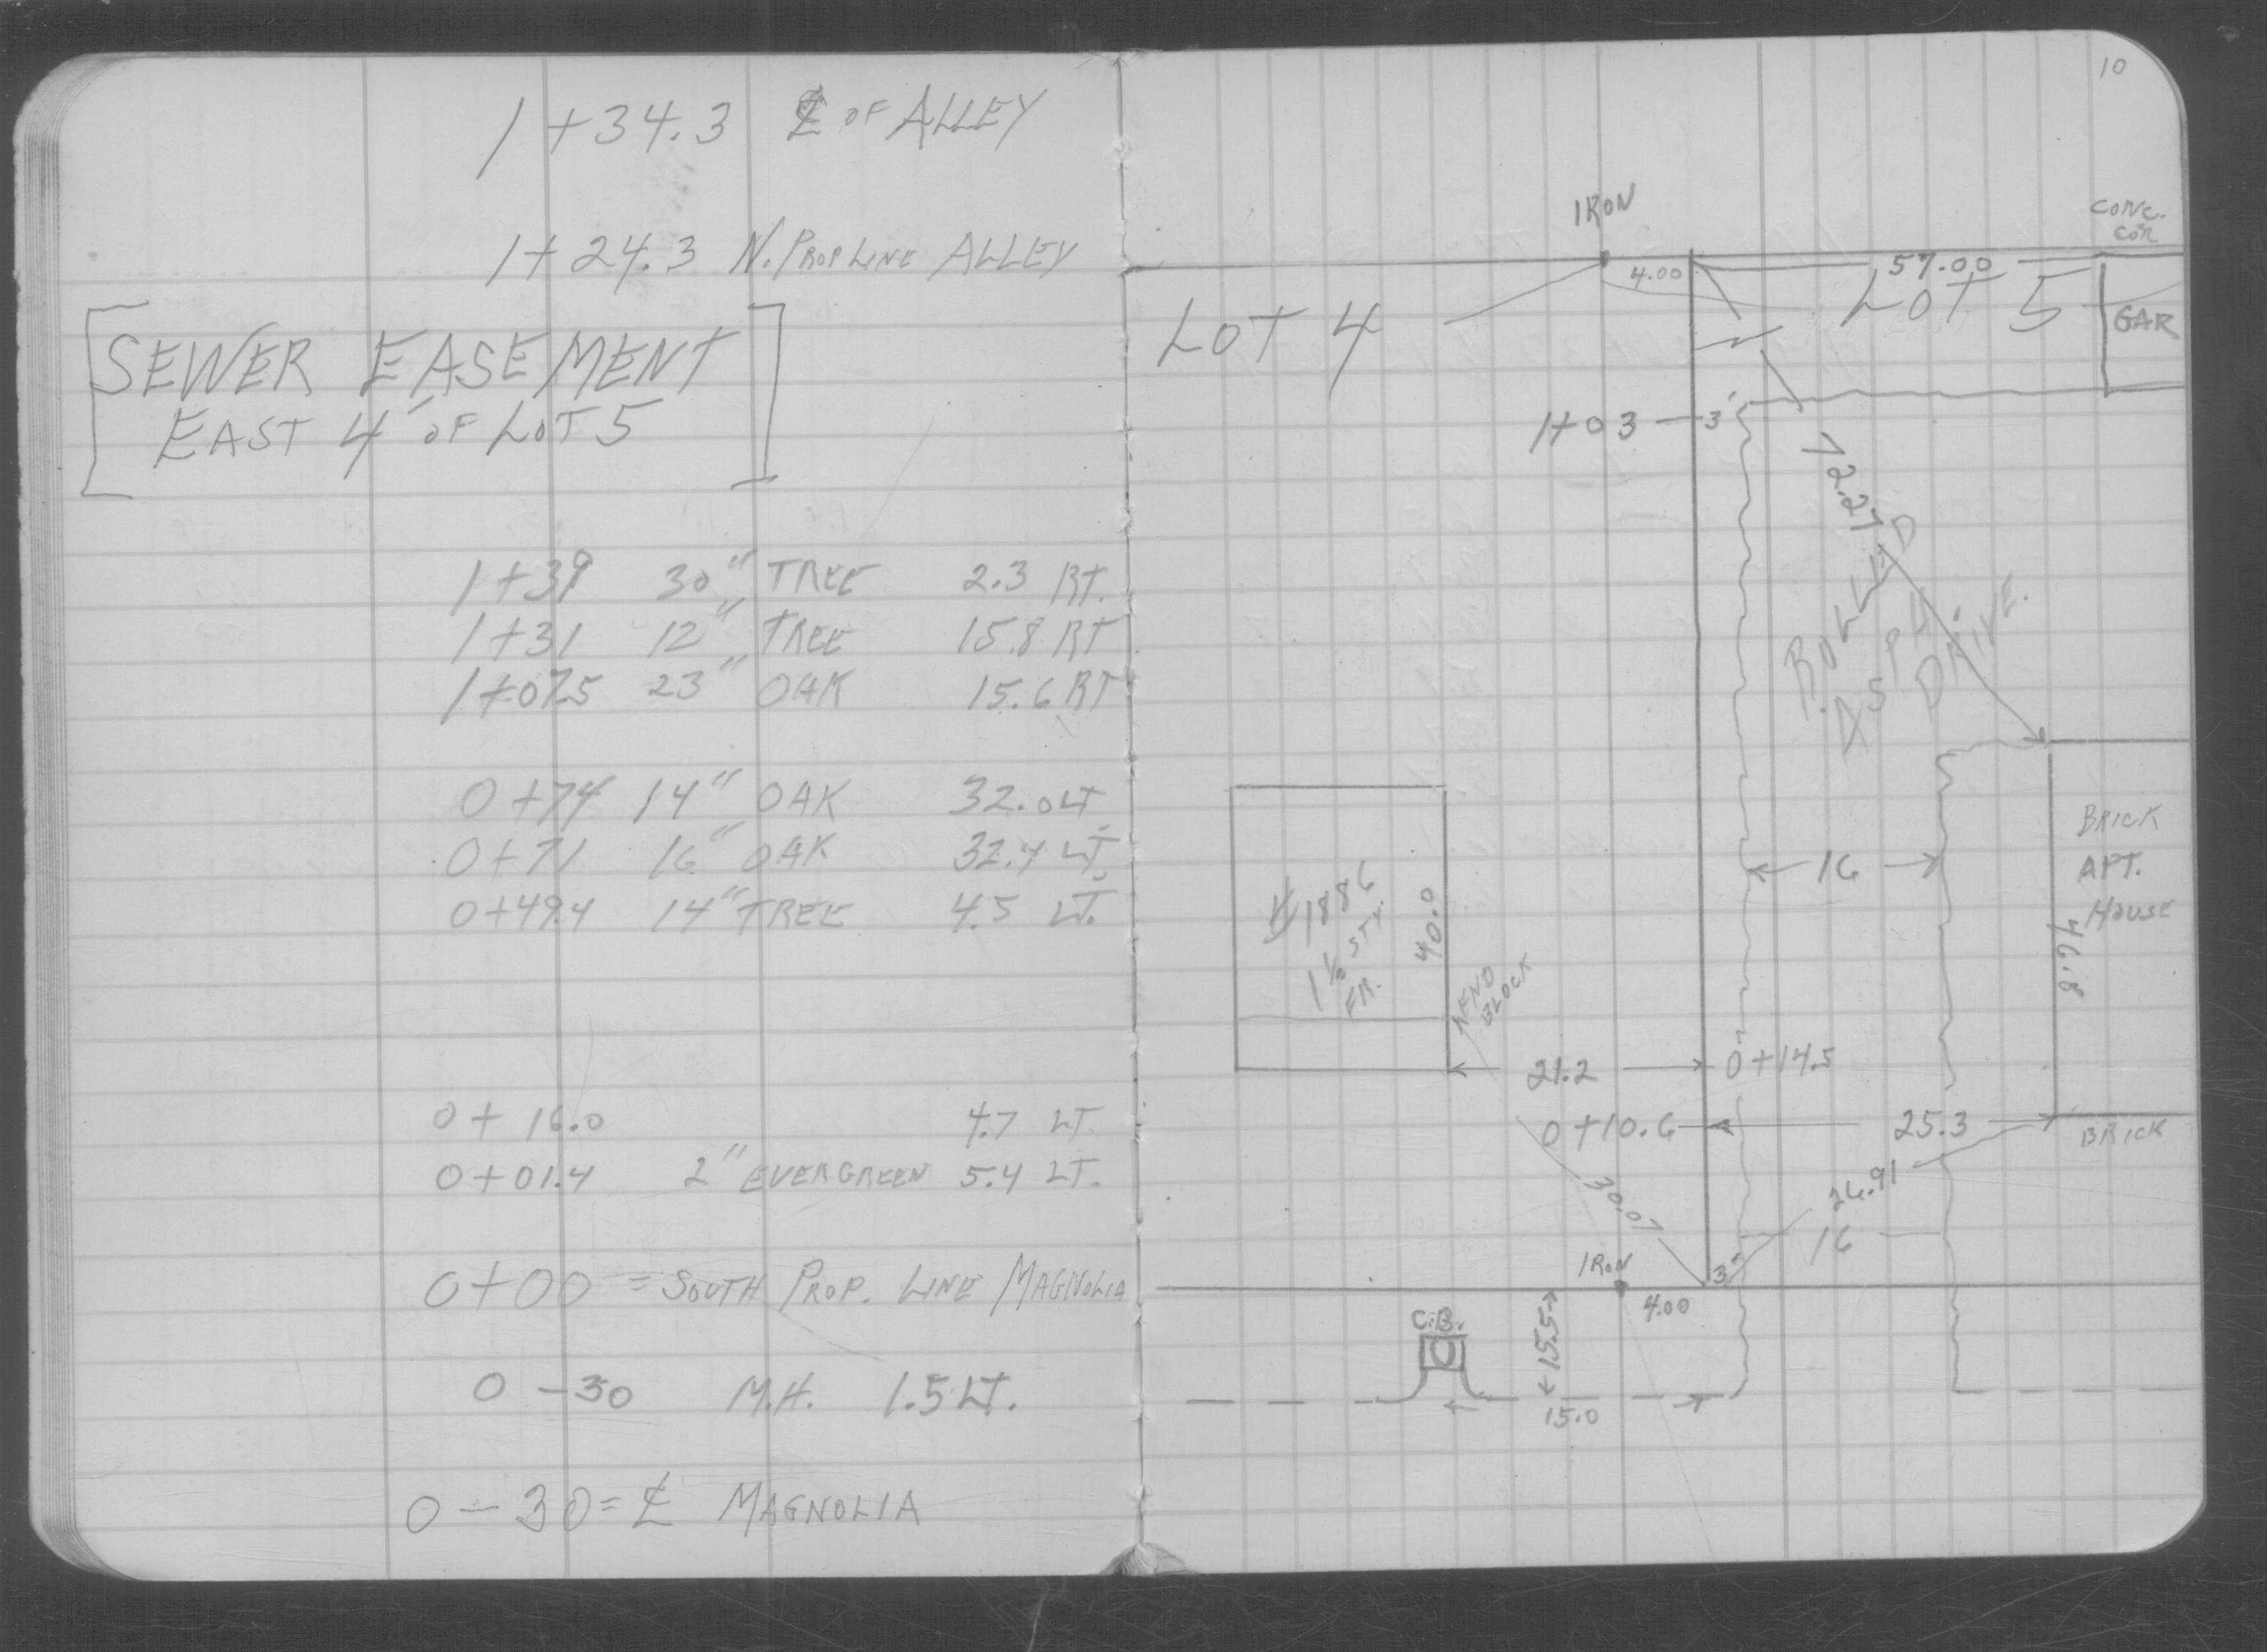 1+34.3 ℄ OF ALLEY
1+24.3 N. PROP LINE ALLEY
[SEWER EASEMENT
EAST 4' OF LOT 5]
1+39 30" TREE 2.3 RT.
1+31 12" TREE 15.8 RT
1+07.5 23" OAK 15.6 RT
0+74 14" OAK 32.0 LT.
0+71 16" OAK 32.4 LT.
0+49.4 14" TREE 4.5 LT.
0+16.0 4.7 LT.
0+01.4 2" EVERGREEN 5.4 LT.
0+00 = SOUTH PROP. LINE MAGNOLIA
0-30 M.H. 1.5 LT.
0-30 = ℄ MAGNOLIA
10
IRON
CONC.
COR
4.00
57.00
LOT 4
LOT 5
GAR
1+03
3'
72.27
ROLLED
ASPH.
DRIVE.
BRICK
APT.
HOUSE
46.8
16
#1886
1½ STY.
FR.
40.0
END
BLOCK
21.2
0+14.5
0+10.6
25.3
BRICK
30.07
26.91
16
IRON
3'
4.00
C.B.
15.5
15.0